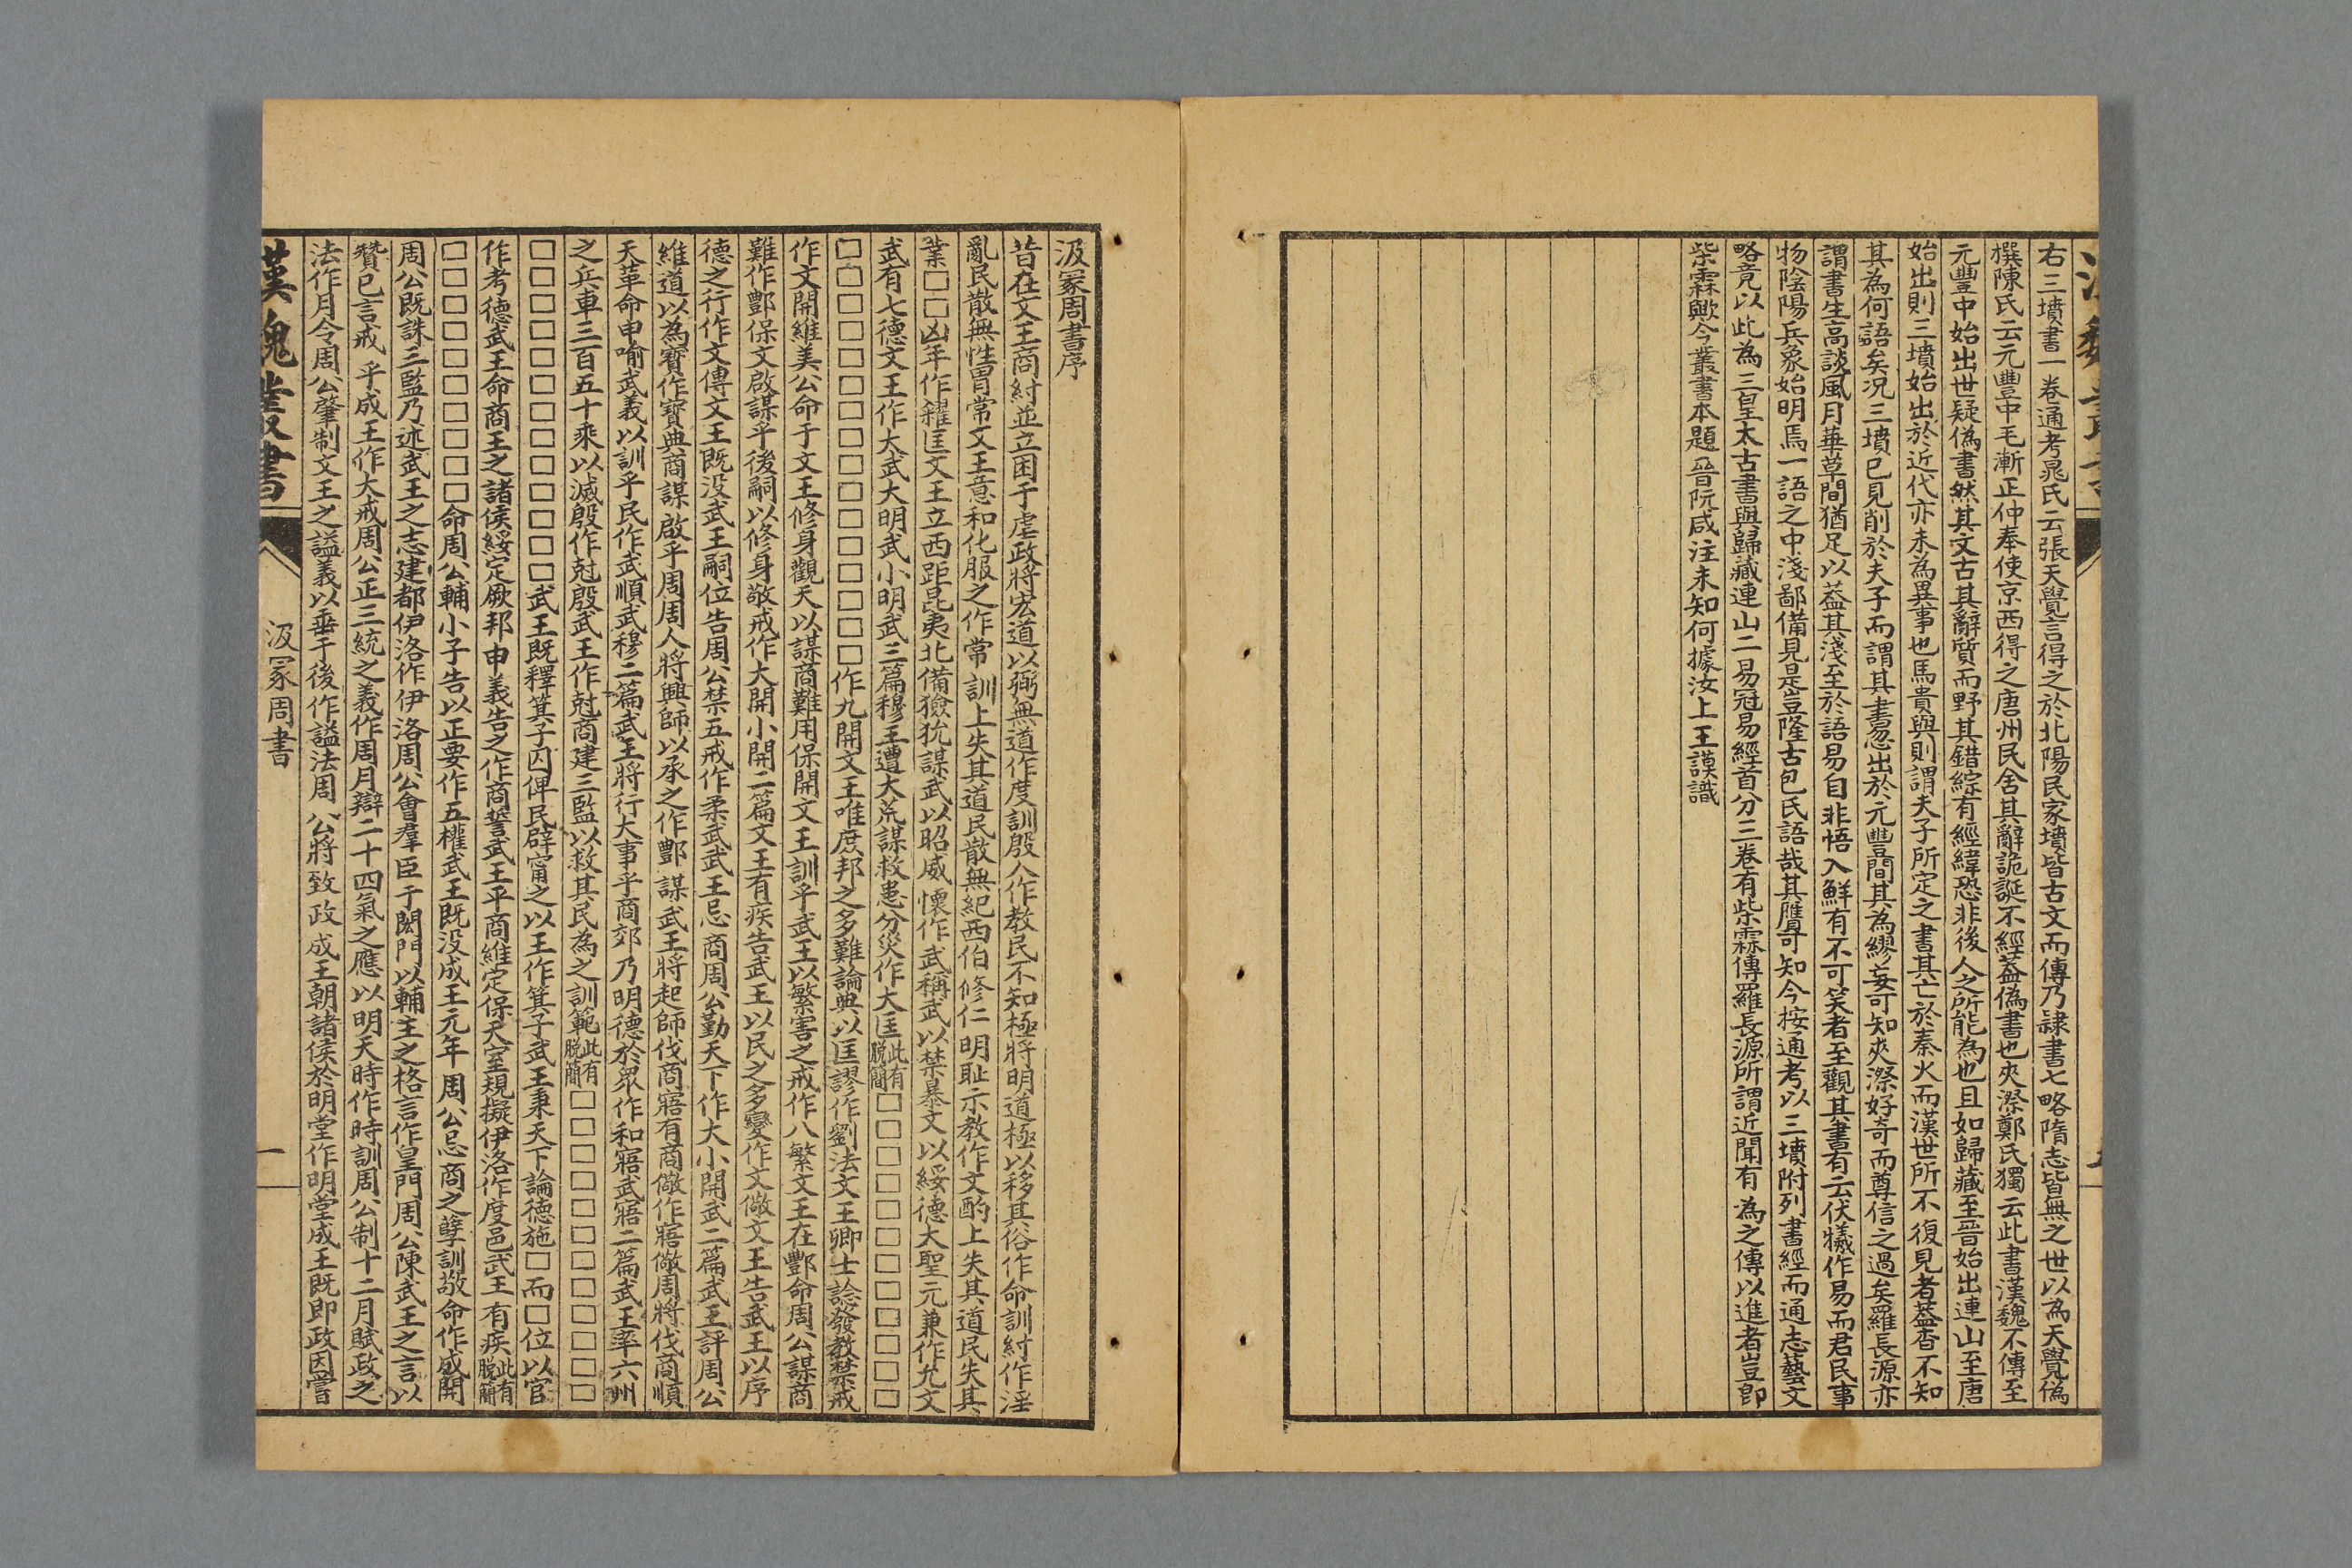 右三墳書一卷通考晁氏云張天覺言得之於北陽民家墳皆古文而傳乃隷書七略隋志皆無之世以為天覺偽
撰陳氏云元豐中毛漸正仲奉使京西得之唐州民舍其辭詭誕不經葢偽書也夾漈鄭氏獨云此書漢魏不傳至
元豐中始出世疑偽書然其文古其辭質而野其錯綜有經緯恐非後人之所能為也且如歸藏至晉始出連山至唐
始出則三墳始出於近代亦未為異事也馬貴與則謂夫子所定之書其亡於秦火而漢世所不復見者葢杳不知
其為何語矣況三墳已見削於夫子而謂其書忽出於元豐間其為繆妄可知夾漈好奇而尊信之過矣羅長源亦
謂書生高談風月華草間猶足以葢其淺至於語易自非悟入鮮有不可笑者至觀其書有云伏犧作易而君民事
物陰陽兵象始明焉一語之中淺鄙備見是豈隆古包氏語哉其贋可知今按通考以三墳附列書經而通志藝文
略竟以此為三皇太古書與歸藏連山二易冠易經首分三卷有柴霖傳羅長源所謂近聞有為之傳以進者豈卽
柴霖歟今叢書本題晉阮咸注未知何據汝上王謨識
汲冢周書序
昔在文王商紂並立困于虐政將宏道以弼無道作度訓殷人作教民不知極將明道極以移其俗作命訓紂作淫
亂民散無性冒常文王意和化服之作常訓上失其道民散無紀西伯修仁明恥示教作文酌上失其道民失其
業□□凶年作糴匡文王立西距昆夷北備獫狁謀武以昭威懷作武稱武以禁暴文以綏德大聖元兼作允文
武有七德文王作大武大明武小明武三篇穆王遭大荒謀救患分災作大匡此有脫簡□□□□□□□□□□□□
□□□□□□□□□□□□□□□□作九開文王唯庶邦之多難論典以匡謬作劉法文王卿士諗發教禁戒
作文開維美公命于文王修身觀天以謀商難用保開文王訓乎武王以繁害之戒作八繁文王在酆命周公謀商
難作酆保文啟謀乎後嗣以修身敬戒作大開小開二篇文王有疾告武王以民之多變作文儆文王告武王以序
德之行作文傳文王既没武王嗣位告周公禁五戒作柔武武王忌商周公勤天下作大小開武二篇武王評周公
維道以為寶作寶典商謀啟乎周周人將興師以承之作酆謀武王將起師伐商寤有商儆作寤儆周將伐商順
天革命申喻武義以訓乎民作武順武穆二篇武王將行大事乎商郊乃明德於眾作和寤武寤二篇武王率六州
之兵車三百五十乘以滅殷作尅殷武王作尅商建三監以救其民為之訓範此有脫簡□□□□□□□□□□□□
□□□□□□□□□□□□□武王既釋箕子囚俾民辟寗之以王作箕子武王秉天下論德施□而□位以官
作考德武王命商王之諸侯綏定厥邦申義告之作商誓武王平商維定保天室規擬伊洛作度邑武王有疾此有脫簡
□□□□□□□□□□命周公輔小子告以正要作五權武王既没成王元年周公忌商之孽訓敬命作成開
周公既誅三監乃述武王之志建都伊洛作伊洛周公會羣臣于閎門以輔主之格言作皇門周公陳武王之言以
贊已言戒乎成王作大戒周公正三統之義作周月辯二十四氣之應以明天時作時訓周公制十二月賦政之
法作月令周公肇制文王之謚義以垂于後作謚法周公將致政成王朝諸侯於明堂作明堂成王既即政因嘗
漢魏叢書
汲冢周書
一